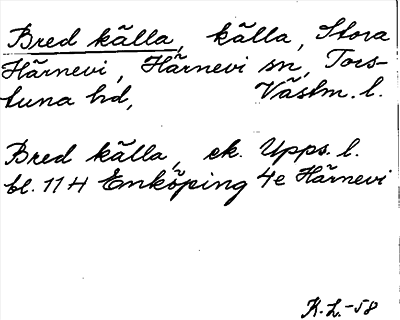 Bred källa, källa, Stora
Härnevi, Härnevi sn, Tors-
tuna hd, Västm. l.
Bred källa, ek. Upps. l.
bl. 11 H Enköping 4e Härnevi
K.L.-58